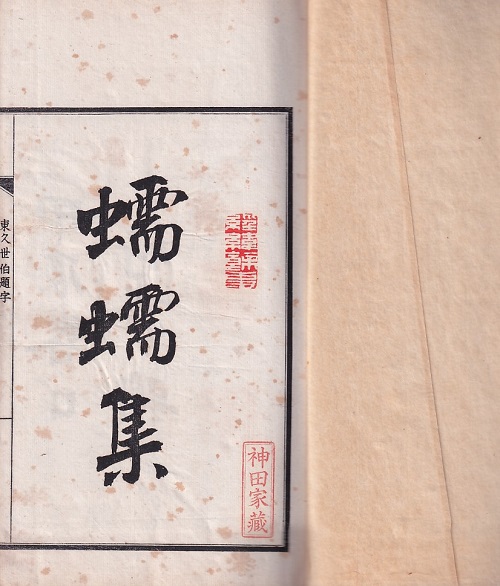 蠕蠕集
神田家藏
東久世伯題字